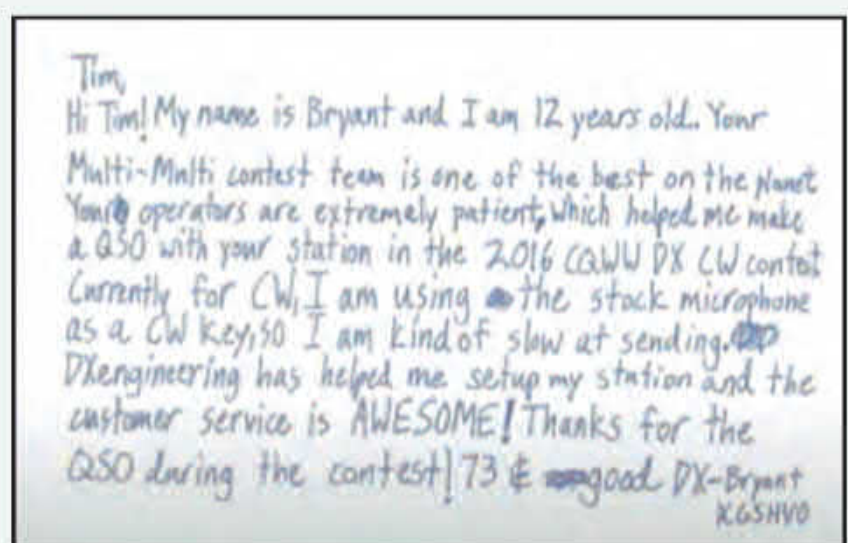 Tim,
Hi Tim! My name is Bryant and I am 12 years old. Your
Multi-Multi contest team is one of the best on the planet
Your operators are extremely patient, which helped me make
a QSO with your station in the 2016 CQWW DX CW contest
Currently for CW, I am using the stock microphone
as a CW key, so I am kind of slow at sending.
DXengineering has helped me setup my station and the
customer service is AWESOME! Thanks for the
QSO during the contest! 73 & good DX-Bryant
KG5HVO